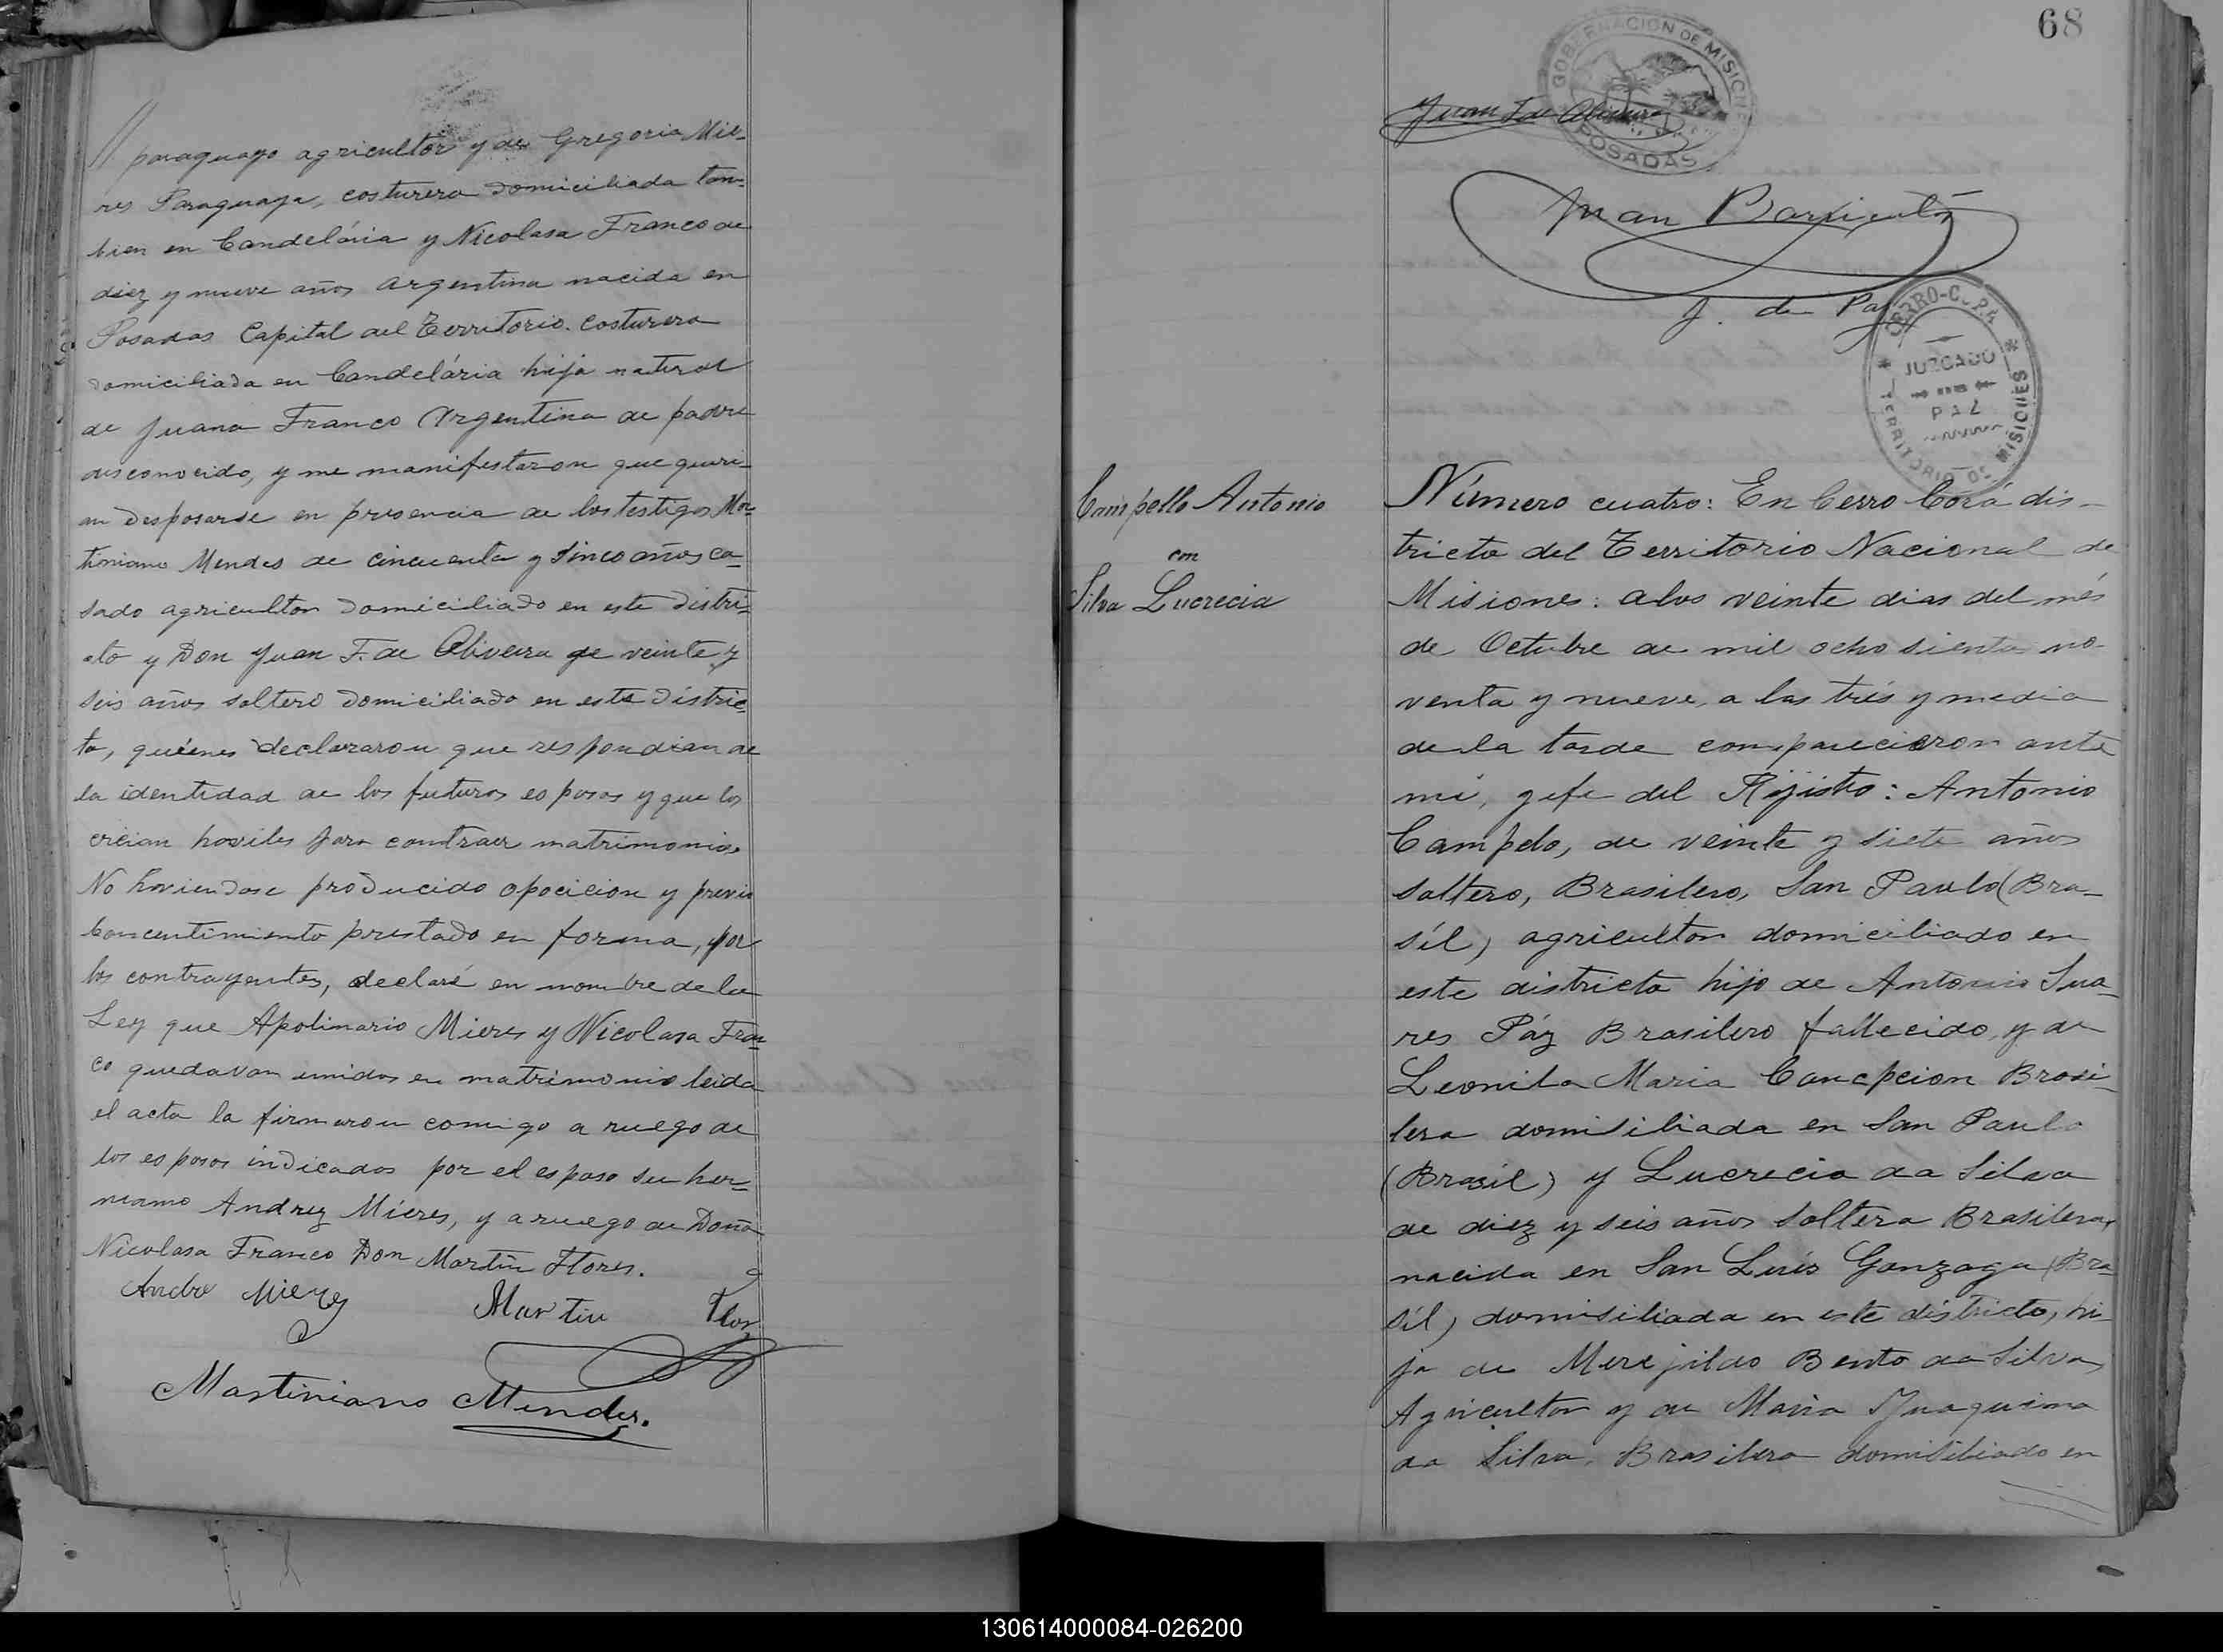 paraguayo agricultor y de Gregoria Mie-
res Paraguaya, costurera domiciliada tan-
bien en Candelária y Nicolasa Franco de
diez y nueve años argentina nacida en
Posadas Capital del Territorio. costurera
domiciliada en Candelária hija natural
de Juana Franco Argentina de padre
desconocido, y me manifestaron que queri-
an desposarse en presencia de los testigos Mar-
tiniano Mendes de cincuenta y sinco años ca-
sado agricultor domiciliado en este distri-
cto y Don Juan F. de Oliveira de veinte y
seis años soltero domiciliado en este distric-
to, quiénes declararon que respondian de
la identidad de los futuros esposos y que los
creian haviles para contraer matrimonio.
No haviendose producido opocicion y previo
concentimiento prestado en forma, por
los contrayentes, declaré en nombre de la
Ley que Apolinario Mieres y Nicolasa Fran-
co quedavan unidos en matrimonio leida
el acta la firmaron comigo a ruego de
los esposos indicados por el esposo su her-
mano Andrez Mieres, y a ruego de Doña
Nicolasa Franco Don Martin Flores.
Andre Mierez Martin Flor
Martiniano Mendes.
68
GOBERNACION DE MISIONES
POSADAS
Juan F de Oliveira
Juan Barrientos
J. de Paz
CERRO-CORÁ
JUZGADO
DE
PAZ
TERRITORIO DE MISIONES
Campello Antonio
con
Silva Lucrecia
Número cuatro: En Cerro Corá dis-
tricto del Territorio Nacional de
Misiones: alos veinte dias del més
de Octubre de mil ocho sientos no-
venta y nueve, a las trés y media
de la tarde comparecieron ante
mi, gefe del Rijistro: Antonio
Campelo, de veinte y siete años
soltero, Brasilero, San Paulo (Bra-
síl) agricultor domiciliado en
este districto hijo de Antonio Sua-
res Páz Brasilero fallecido, y de
Leonila Maria Concepcion Brasi-
lera domisiliada en San Paulo
(Brasil) y Lucrecia da Silva
de diez y seis años soltera Brasilera,
nacida en San Luís Gonzaga (Bra-
síl) domisiliada en este districto, hi-
ja de Merejildo Bento da Silva,
Agricultor y de Maria Juaquima
da Silva, Brasilera domisiliado en
130614000084-026200